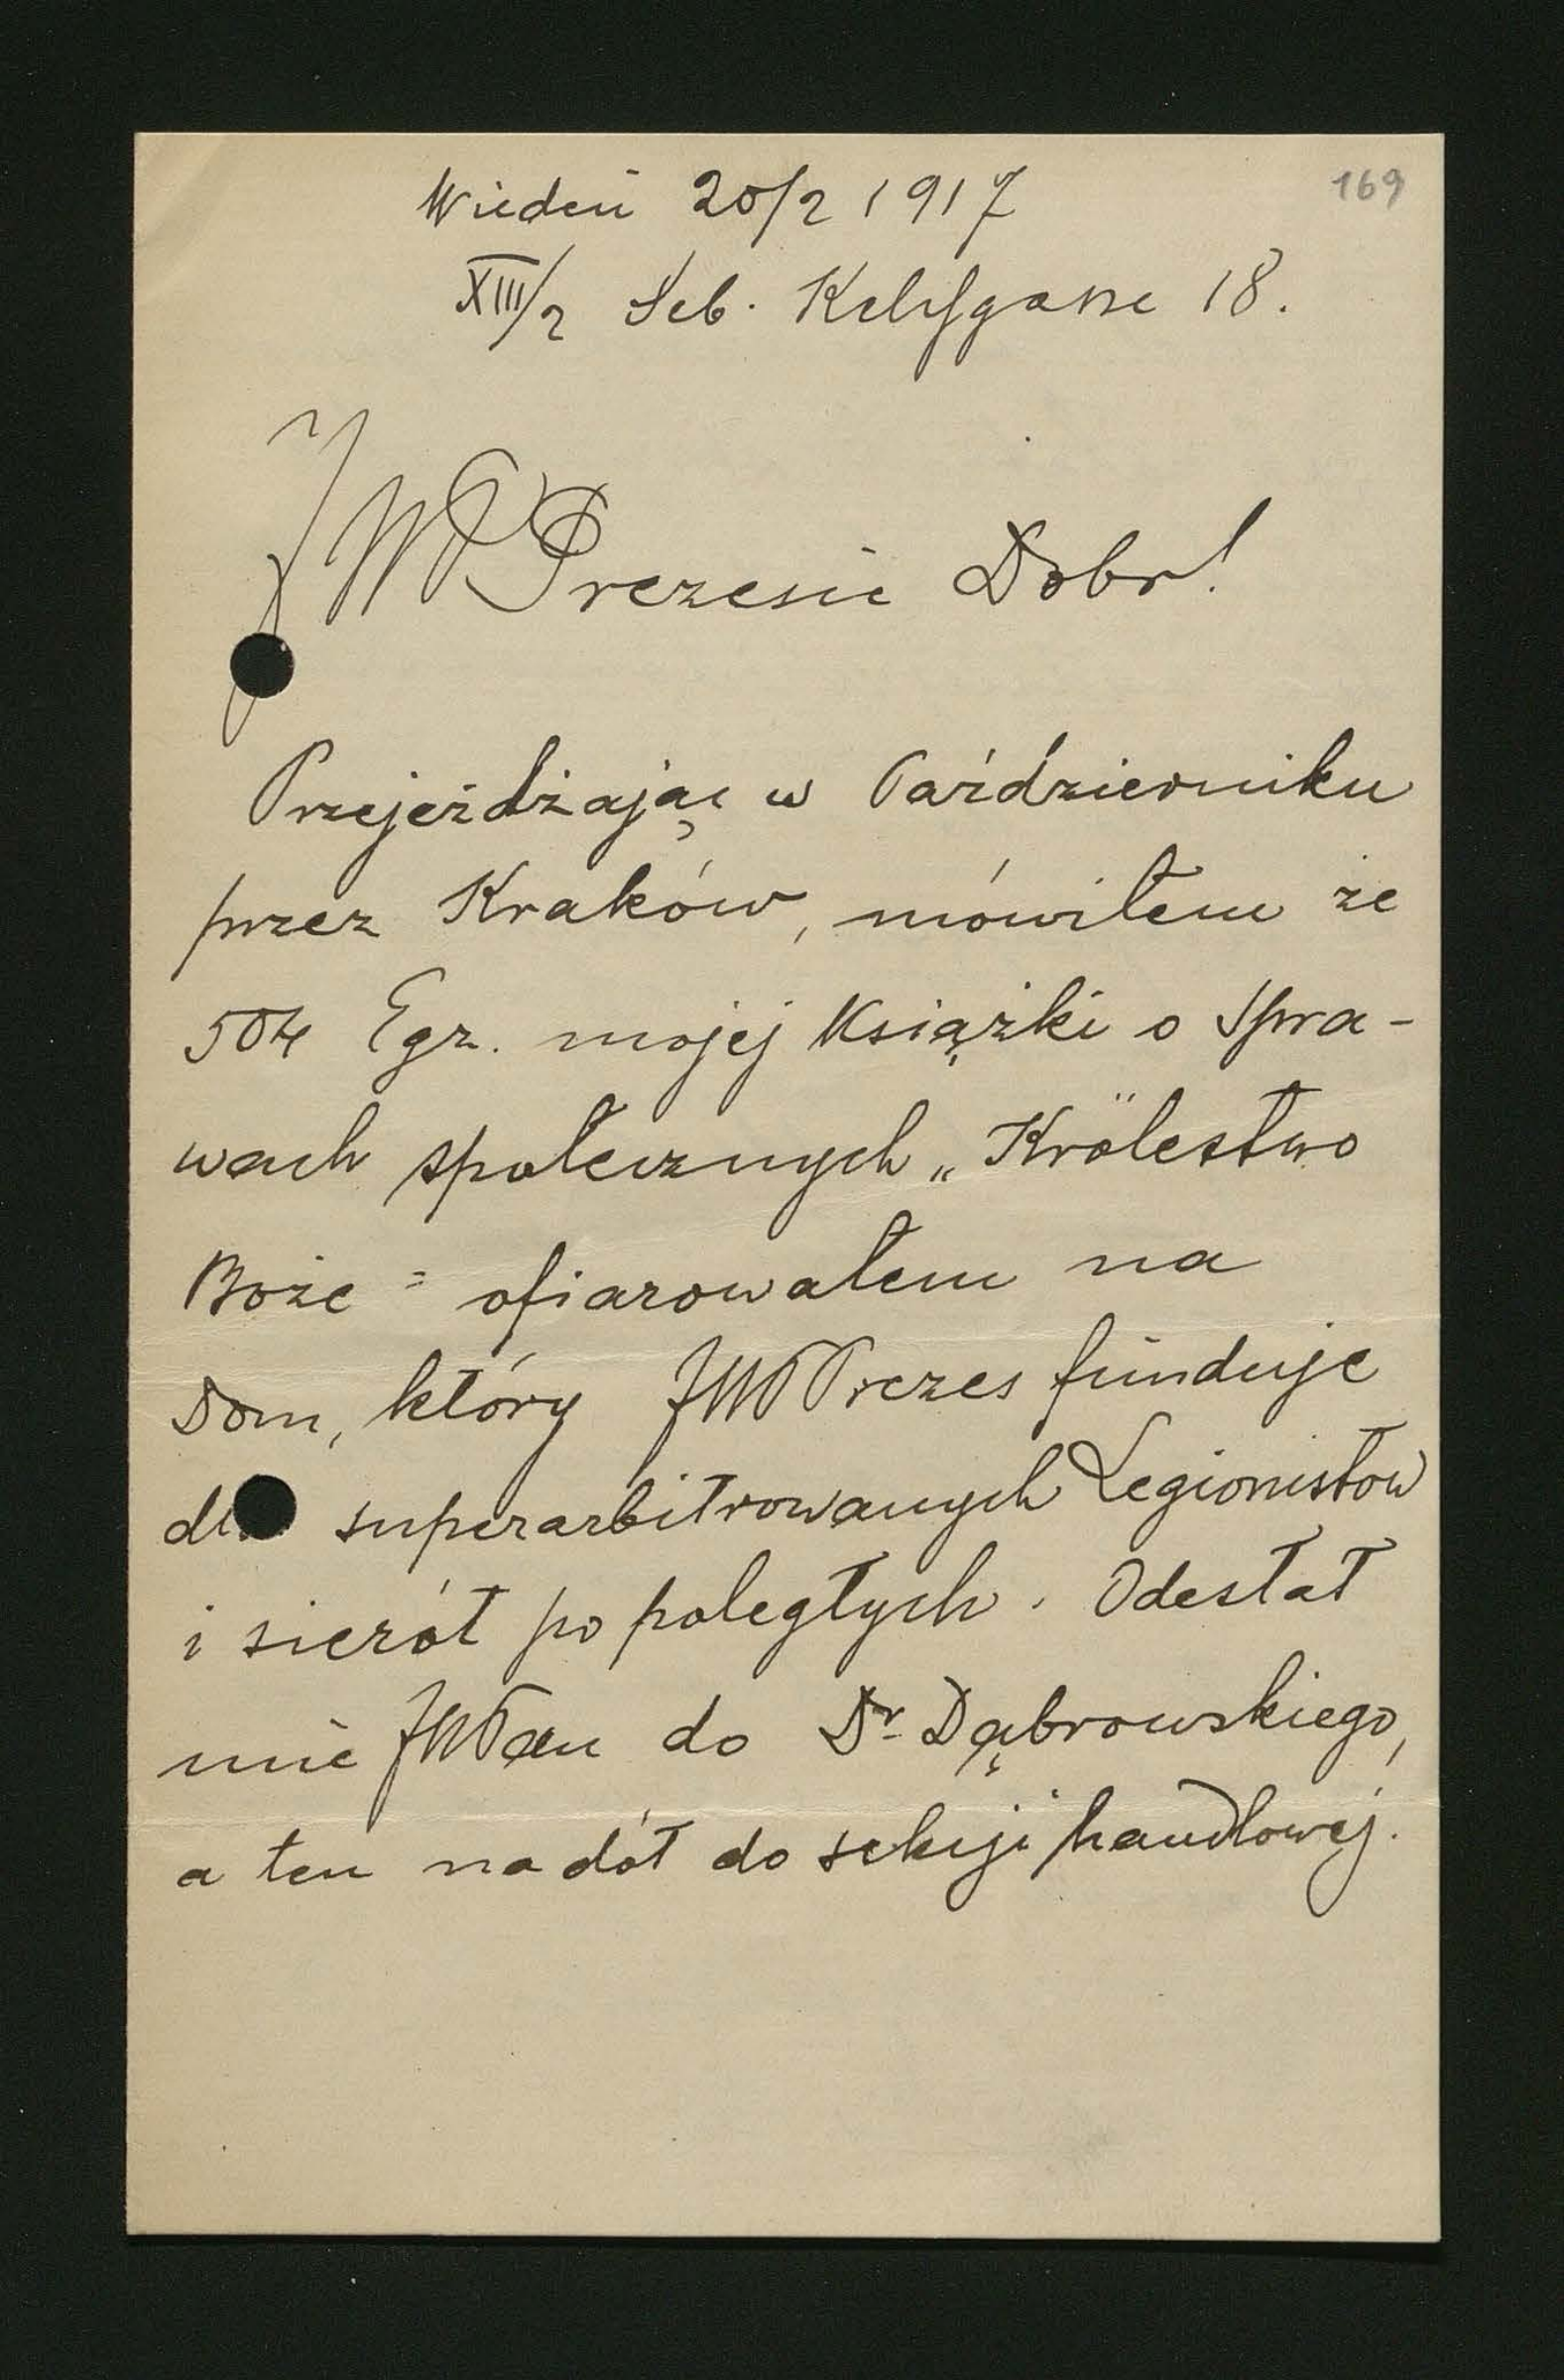 169
Wiedeń 20/2 1917
XIII/2 Seb. Kelchgasse 18.
JWP Prezesie Dobr!
Przejeżdżając w Październiku
przez Kraków, mówiłem że
504 Egz. mojej Książki o Spra-
wach społecznych „Królestwo
Boże" ofiarowałem na
Dom, który JWP Prezes funduje
dla superarbitrowanych Legionistów
i sierót po poległych. Odesłał
mię JWPan do Dr Dąbrowskiego,
a ten na dół do sekcji handlowej.